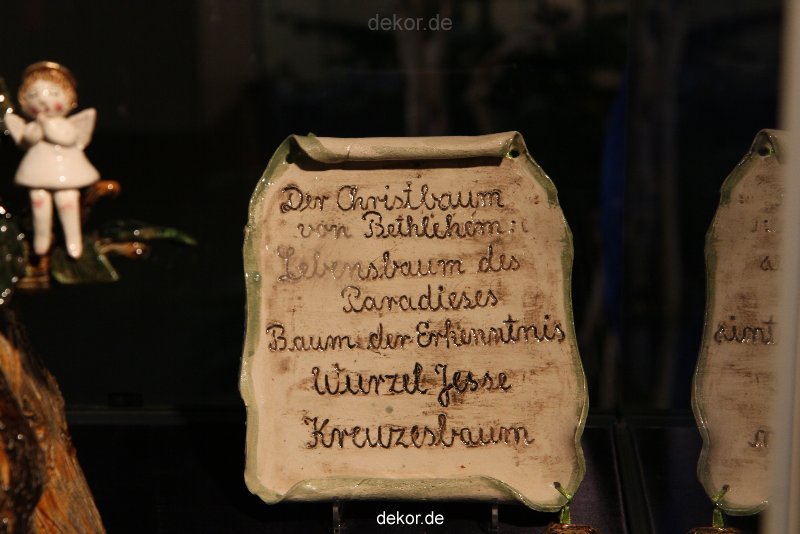 dekor.de
Der Christbaum
von Bethlehem:
Lebensbaum des
Paradieses
Baum der Erkenntnis
Wurzel Jesse
Kreuzesbaum
dekor.de